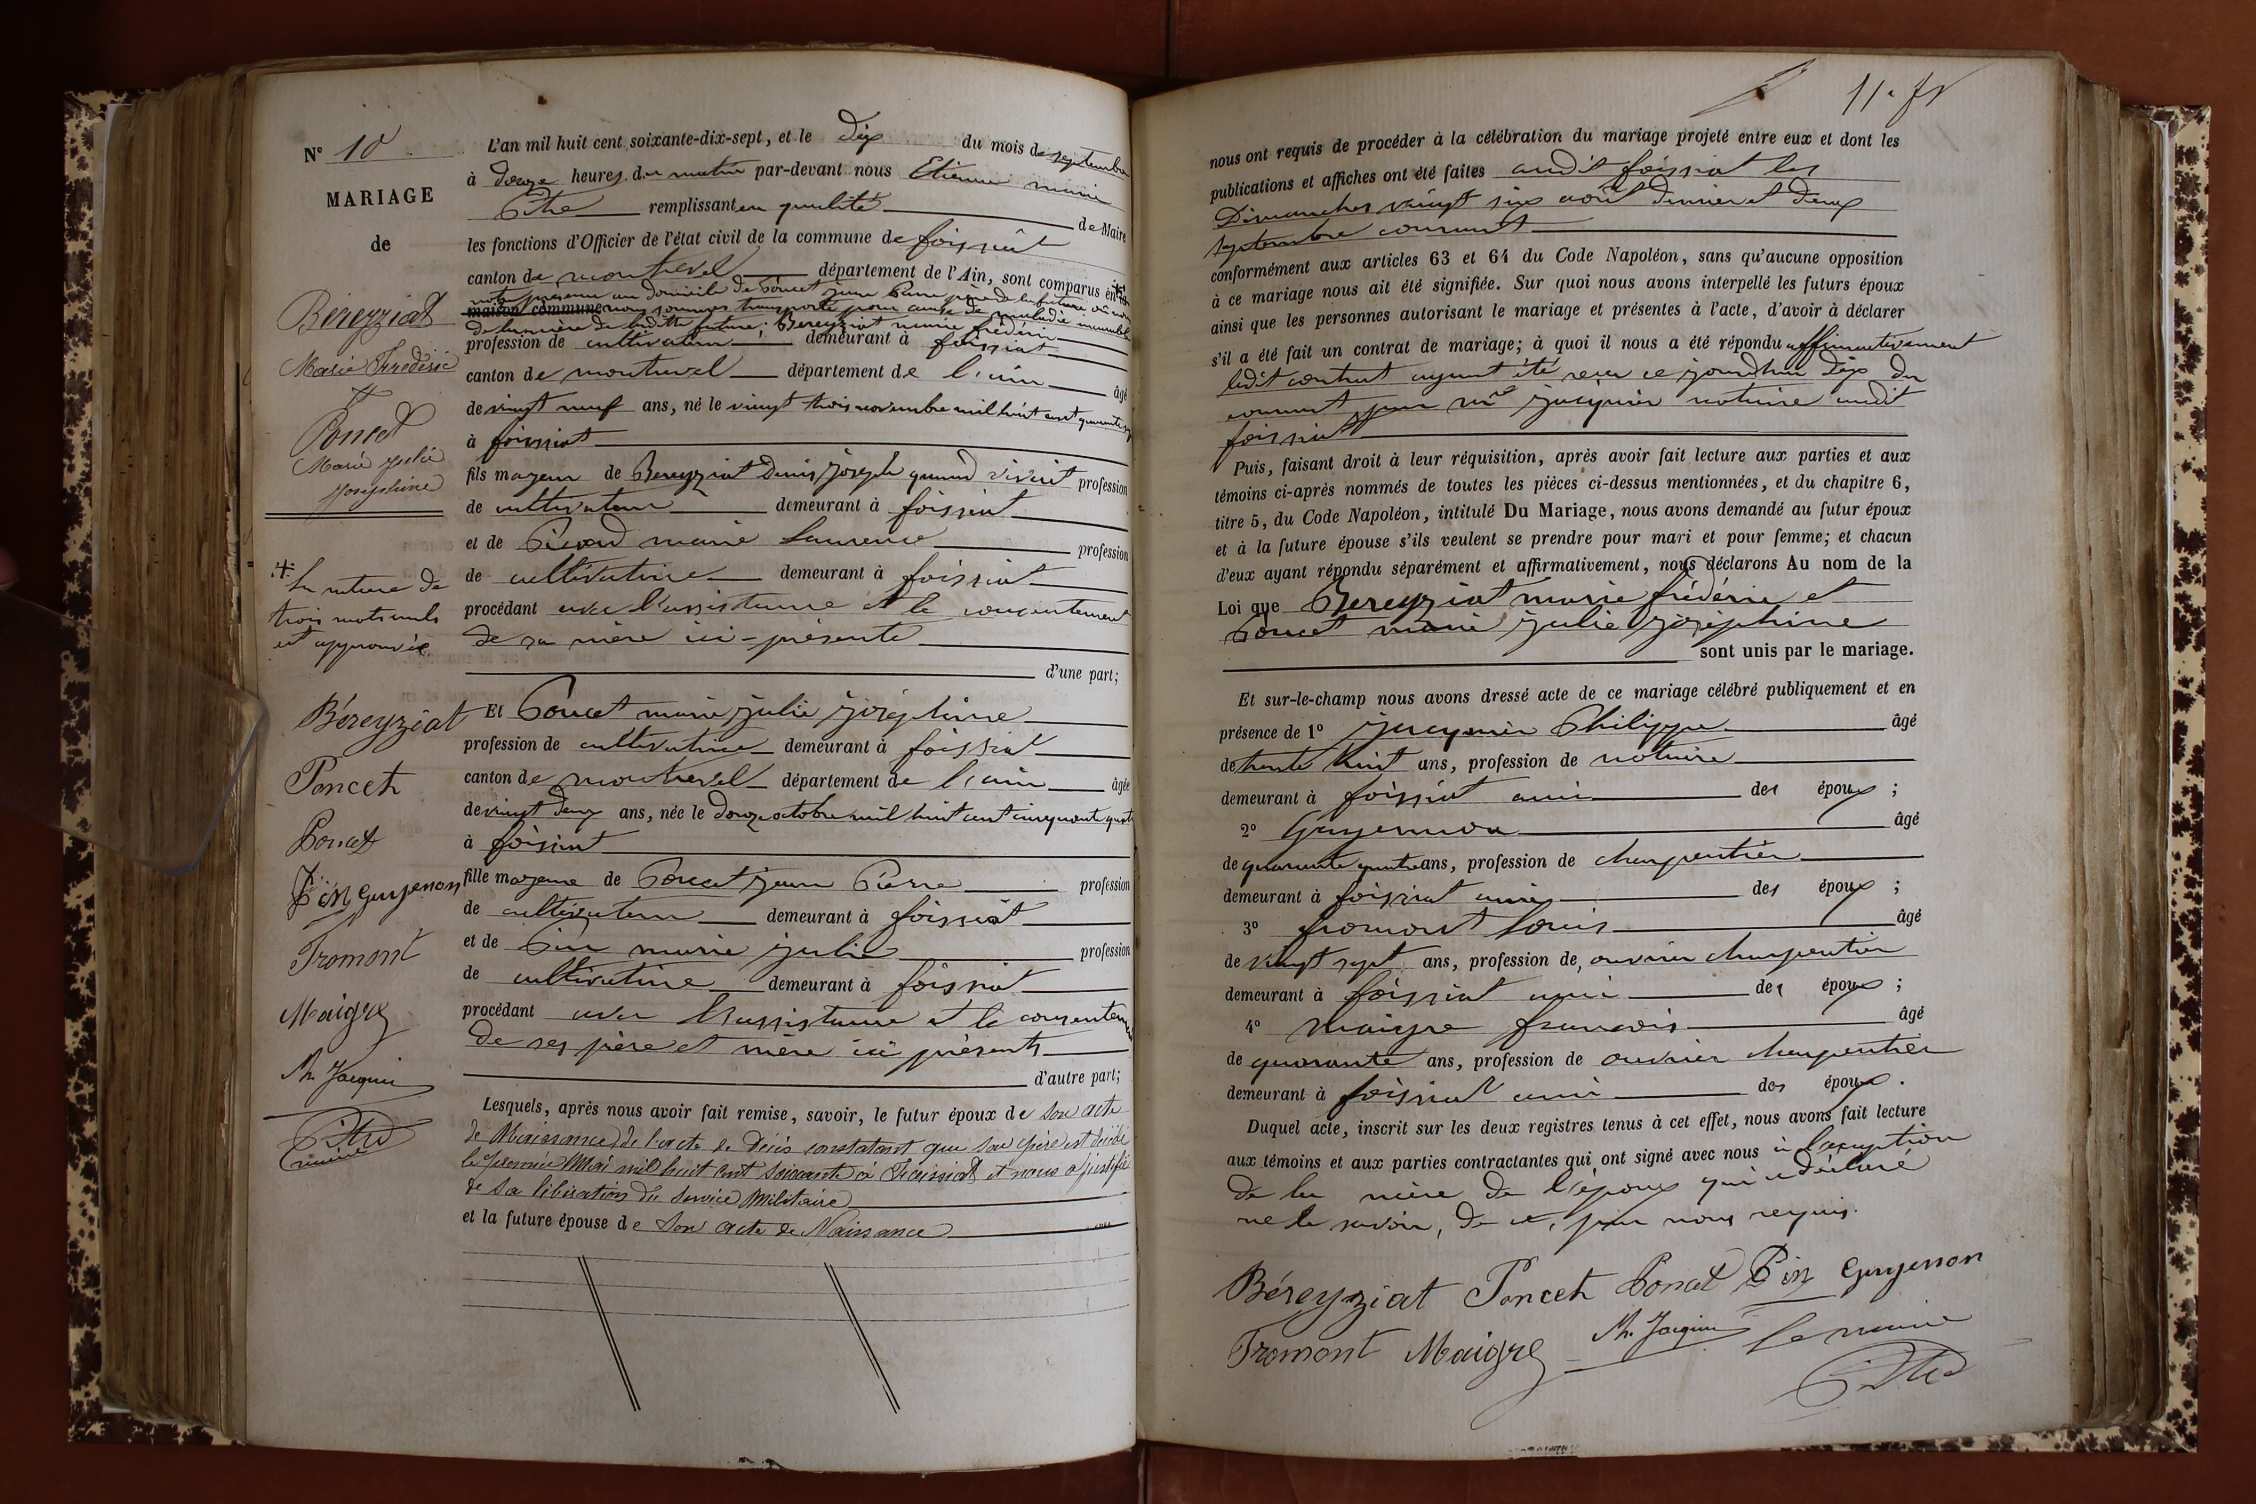 N° 10
MARIAGE
de
Béreyziat
Marie Frédéric
&
Poncet
Marie Julie
Joséphine
la rature de
trois mots nuls
est approuvée
Béreyziat
Poncet
Poncet
Pin Guyenon
Fromont
Maigre
Ph. Jacquin
Pitre
maire
L'an mil huit cent soixante-dix-sept, et le dix du mois de septembre
à douze heures du matin par-devant nous Etienne marie
Pitre remplissant en qualité de Maire
les fonctions d'Officier de l'état civil de la commune de foissiat
canton de montrevel département de l'Ain, sont comparus en la
notre présence au domicile de Poncet jean Pierre père de la future où nous
maison commune nous sommes transporté pour cause de maladie
de la mère de ladite future : Bereyziat marie frédéric
profession de cultivateur demeurant à foissiat
canton de montrevel département de l'ain âgé
de vingt neuf ans, né le vingt trois novembre mil huit cent quarante
à foissiat
fils majeur de Bereyziat Denis joseph quand vivait profession
de cultivateur demeurant à foissiat
et de marie Laurence profession
de cultivatrice demeurant à foissiat
procédant avec l'assistance et le consentement
de sa mère ici-présente
d'une part;
Et Poncet marie julie joséphine
profession de cultivatrice demeurant à foissiat
canton de montrevel département de l'ain âgée
de vingt deux ans, née le douze octobre mil huit cent cinquante quatre
à foissiat
fille majeure de Poncet jean Pierre profession
de cultivateur demeurant à foissiat
et de Pin marie julie profession
de cultivatrice demeurant à foissiat
procédant avec l'assistance et le consentement
de ses père et mère ici présents
d'autre part;
Lesquels, après nous avoir fait remise, savoir, le futur époux de son acte
de Naissance, de l'acte de Décès constatant que son père est décédé
le premier Mai mil huit cent soixante à Foissiat et nous a justifié
de sa libération du service militaire
et la future épouse de son acte de Naissance
11.
nous ont requis de procéder à la célébration du mariage projeté entre eux et dont les
publications et affiches ont été faites audit foissiat les
Dimanches vingt six août dernier et deux
septembre courant
conformément aux articles 63 et 64 du Code Napoléon, sans qu'aucune opposition
à ce mariage nous ait été signifiée. Sur quoi nous avons interpellé les futurs époux
ainsi que les personnes autorisant le mariage et présentes à l'acte, d'avoir à déclarer
s'il a été fait un contrat de mariage; à quoi il nous a été répondu affirmativement
ledit contrat ayant été reçu ce jourd'hui dix du
courant par Me jacquier notaire audit
foissiat
Puis, faisant droit à leur réquisition, après avoir fait lecture aux parties et aux
témoins ci-après nommés de toutes les pièces ci-dessus mentionnées, et du chapitre 6,
titre 5, du Code Napoléon, intitulé Du Mariage, nous avons demandé au futur époux
et à la future épouse s'ils veulent se prendre pour mari et pour femme; et chacun
d'eux ayant répondu séparément et affirmativement, nous déclarons Au nom de la
Loi que Bereyziat marie frédéric et
Poncet marie julie joséphine
sont unis par le mariage.
Et sur-le-champ nous avons dressé acte de ce mariage célébré publiquement et en
présence de 1° jacquier Philippe âgé
de trente huit ans, profession de notaire
demeurant à foissiat ami des époux ;
2° Guyennon âgé
de quarante quatre ans, profession de charpentier
demeurant à foissiat ami des époux ;
3° fromont Louis âgé
de vingt sept ans, profession de ouvrier charpentier
demeurant à foissiat ami des époux ;
4° Maigre francois âgé
de quarante ans, profession de ouvrier charpentier
demeurant à foissiat ami des époux .
Duquel acte, inscrit sur les deux registres tenus à cet effet, nous avons fait lecture
aux témoins et aux parties contractantes qui ont signé avec nous à l'exception
de la mère de l'époux qui a déclaré
ne le savoir, de ce, par nous requis.
Béreyziat Poncet Poncet Pin Guyenon
Fromont Maigre Ph. Jacquin Le maire
Pitre